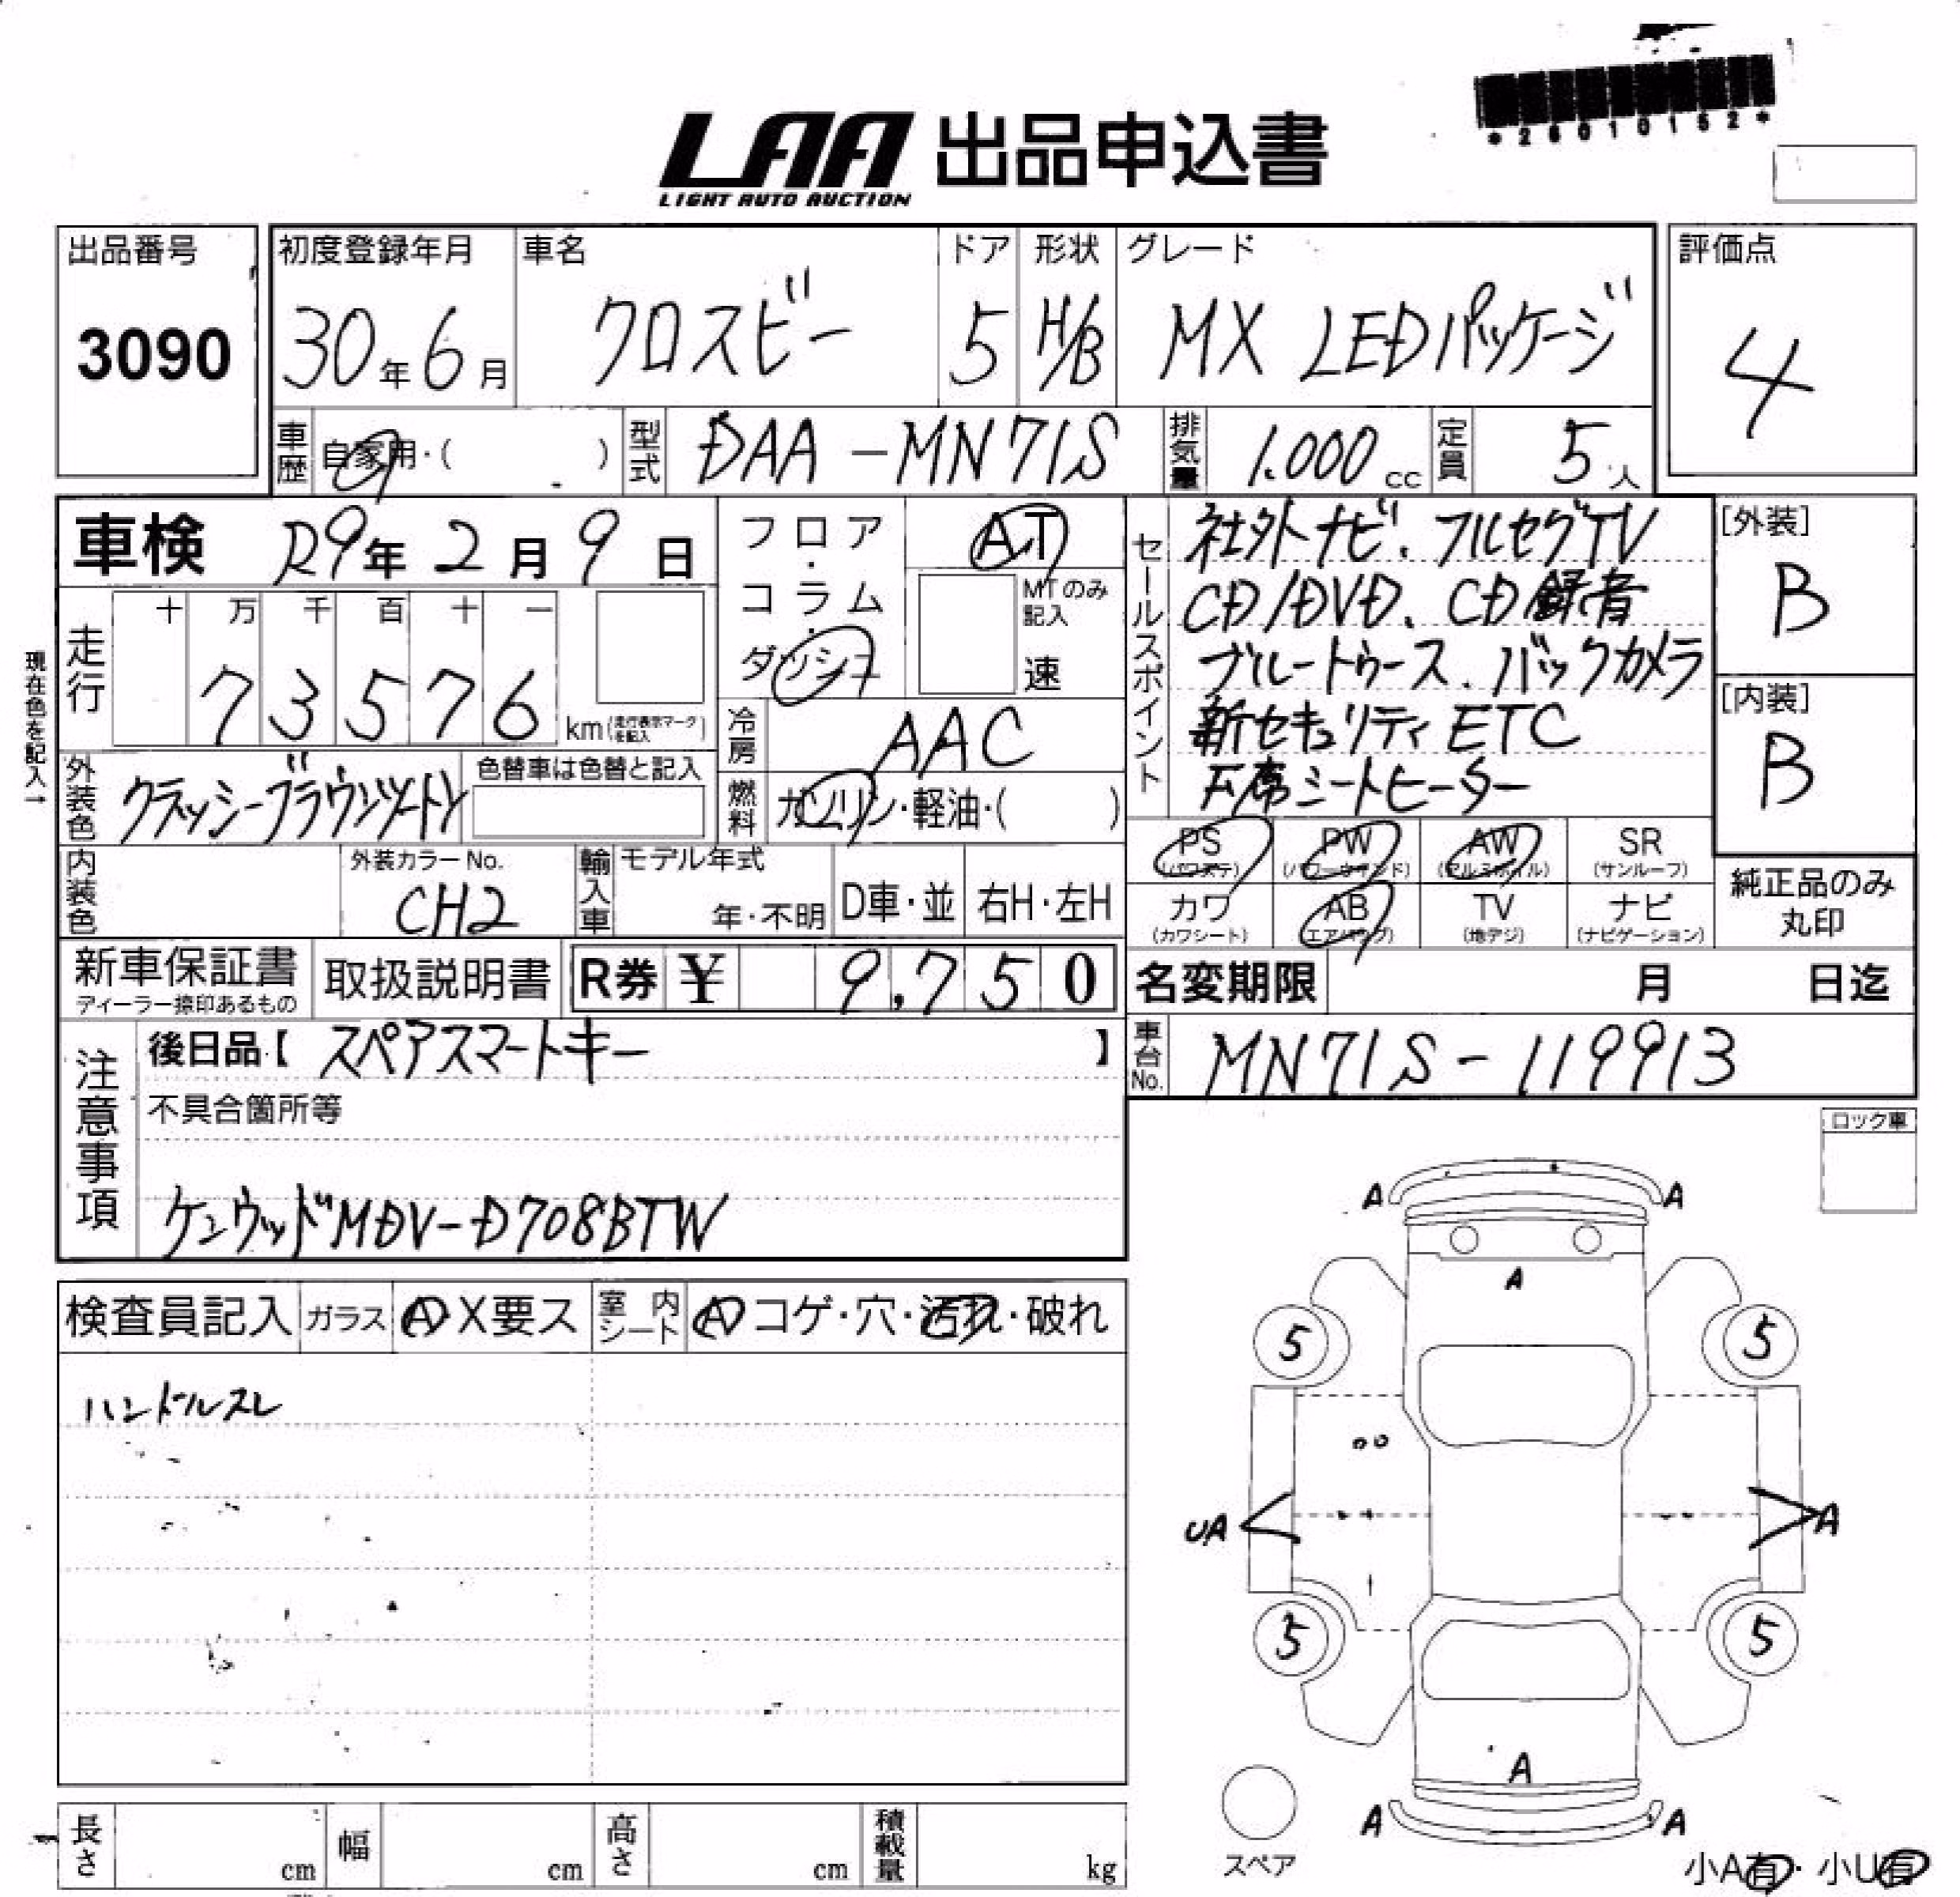 *26010152*
LAA 出品申込書
LIGHT AUTO AUCTION
出品番号 初度登録年月 車名 ドア 形状 グレード 評価点
3090 30年6月 クロスビー 5 H/B MX LEDパッケージ 4
車歴 自家用・( ) 型式 DAA-MN71S 排気量 1.000cc 定員 5人
車検 R9年2月9日
フロア・コラム・ダッシュ AT
MTのみ記入 速
セールスポイント
社外ナビ、フルセグTV
CD/DVD、CD録音
ブルートゥース、バックカメラ
新セキュリティ ETC
席シートヒーター
[外装]
B
[内装]
B
現在色を記入→
走行 十 万 千 百 十 一
7 3 5 7 6 km (走行表示マークを記入)
冷房 AAC
外装色 クラッシーブラウンツートン 色替車は色替と記入
燃料 ガソリン・軽油・( )
内装色 外装カラーNo. CH2
輸入車 モデル年式 年・不明 D車・並 右H・左H
PS (パワステ) PW (パワーウインド) AW (アルミホイル) SR (サンルーフ)
カワ (カワシート) AB (エアバッグ) TV (地デジ) ナビ (ナビゲーション)
純正品のみ
丸印
新車保証書 ディーラー捺印あるもの 取扱説明書 R券 ¥ 9,750
名変期限 月 日迄
注意事項
後日品【 スペアスマートキー 】
車台No. MN71S-119913
不具合箇所等
ケンウッドMDV-D708BTW
ロック車
検査員記入 ガラス A X要ス 室内シート A コゲ・穴・汚れ・破れ
ハンドルスレ
A A
A
5 5
UA A
5 5
A
A A
スペア
小A有・小U有
長さ cm 幅 cm 高さ cm 積載量 kg